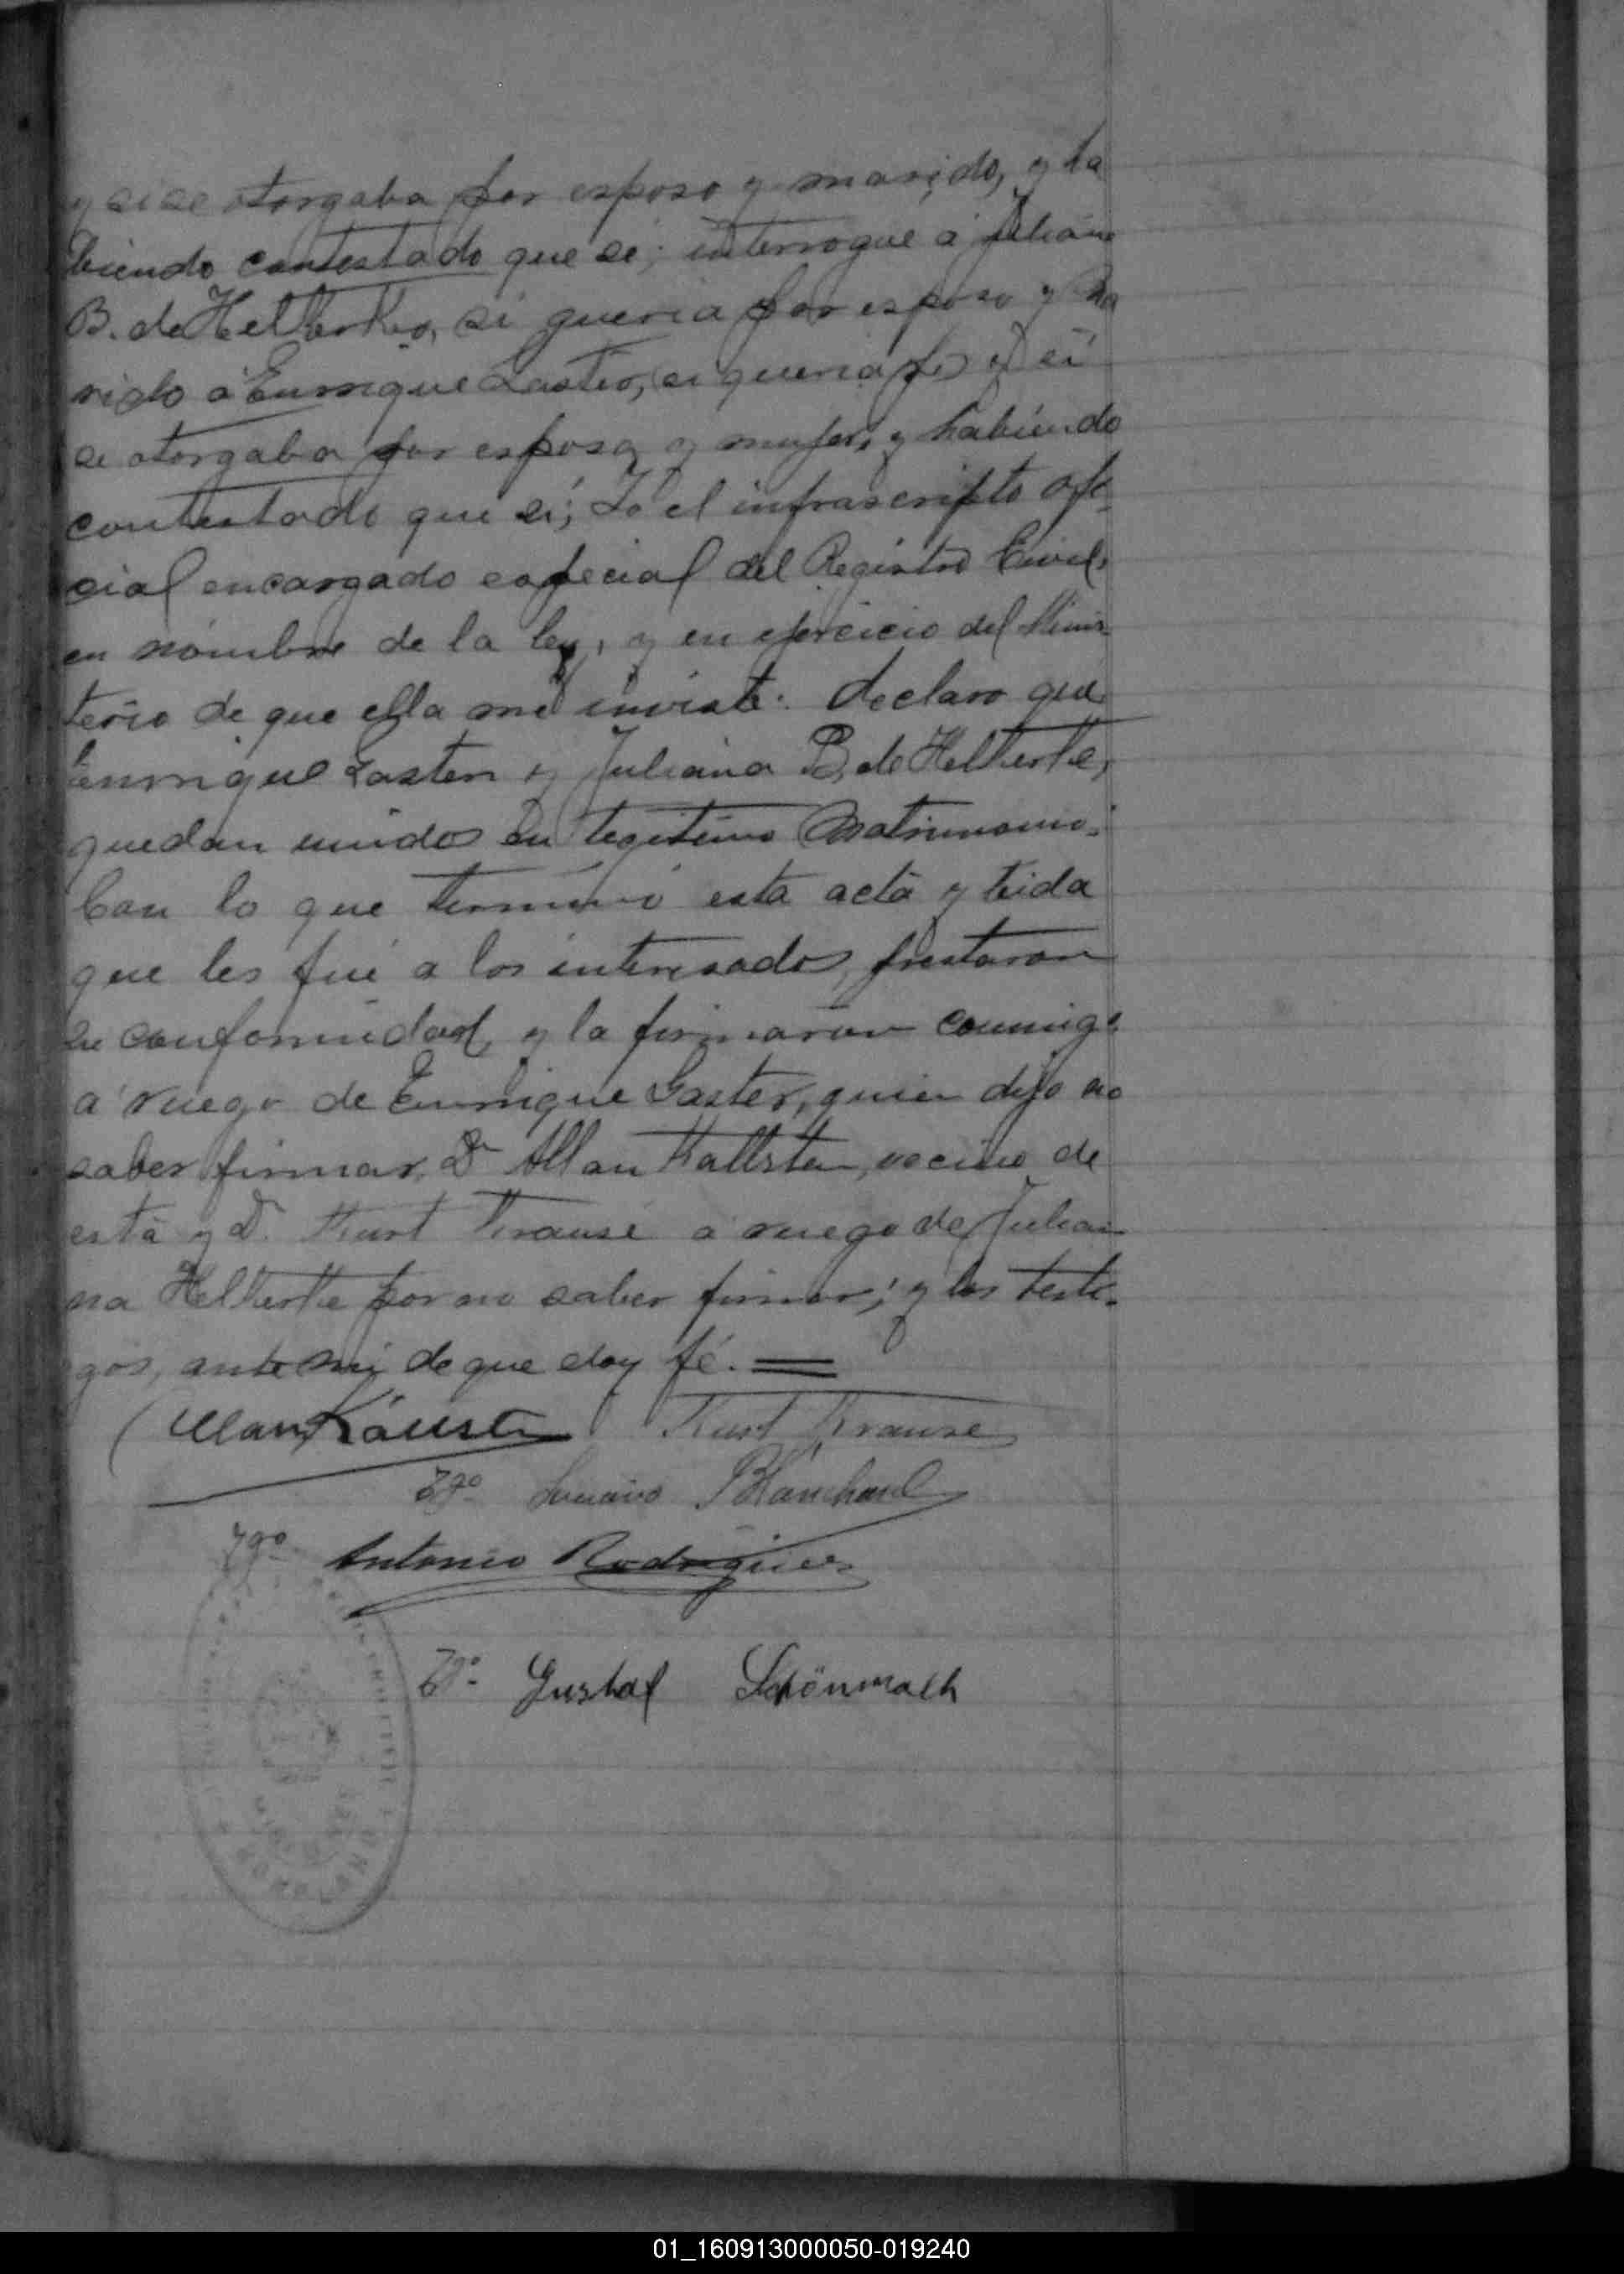 y si se otorgaba por esposo y marido, y ha
biendo contestado que sí; interrogué á Juliana
B. de Helkerke, si queria por esposo y Ma
rido á Enrrique Laster, si queria y si
se otorgaba por esposa y mujer, y habiendo
contestado que sí; Yo el infrascripto ofi-
cial encargado especial del Registro Civil,
en nombre de la ley, y en ejercicio del Minis-
terio de que ella me inviste: declaro que
Enrrique Laster y Juliana B. de Helkerke,
quedan unidos en legitimo Matrimonio.
Con lo que terminó esta acta y leida
que les fué a los interesados, prestaron
su conformidad, y la firmaron conmigo
á ruego de Enrrique Laster, quien dijo no
saber firmar, Dn Allan Kallsten, vecino de
esta y D. Kurt Krause a ruego de Julia
na Helkerke por no saber firmar; y los testi-
gos, ante mi de que doy fé. =
Allan Kallsten Kurt Krause
Tgo. Blanchard
Tgo. Antonio Rodriguez
Tgo. Gustaf
01_160913000050-019240